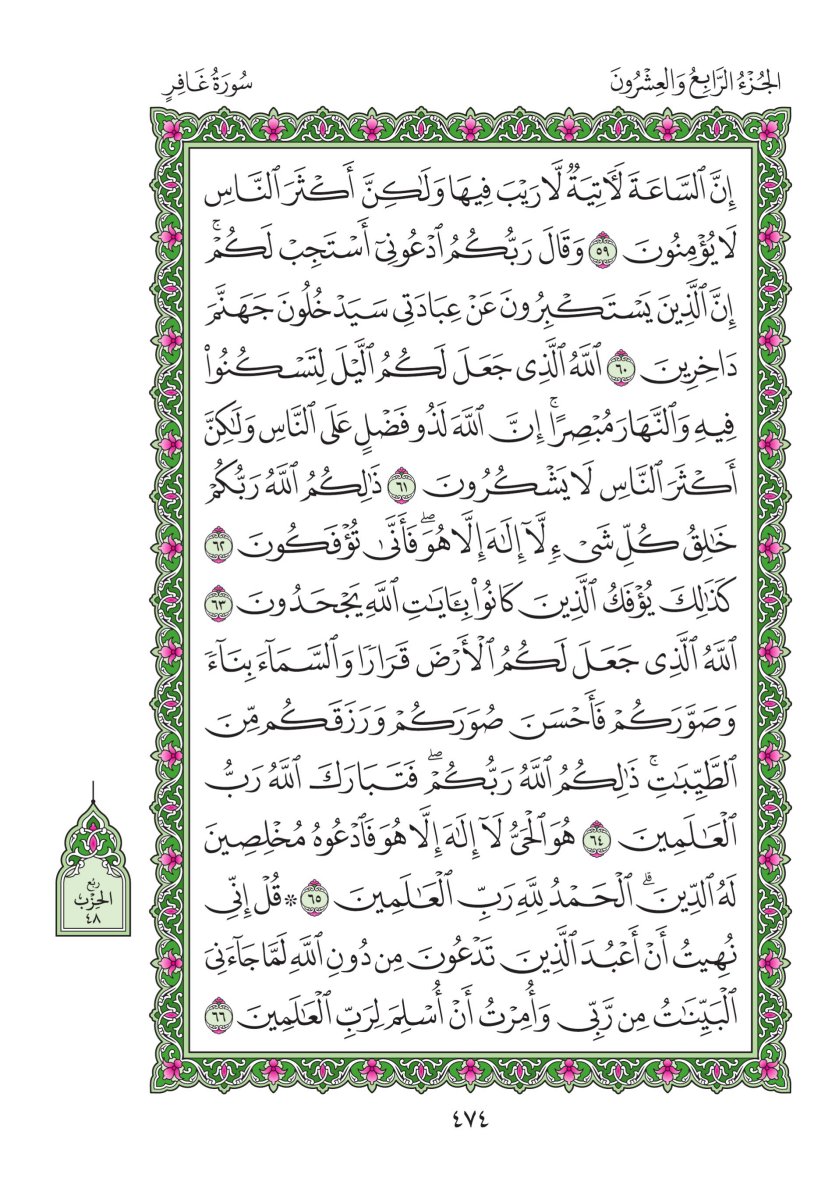 الجُزْءُ الرَّابِعُ وَالعِشْرُونَ
سُورَةُ غَافِرٍ
إِنَّ ٱلسَّاعَةَ لَأٓتِيَةٌ لَّا رَيْبَ فِيهَا وَلَٰكِنَّ أَكْثَرَ ٱلنَّاسِ
لَا يُؤْمِنُونَ ٥٩ وَقَالَ رَبُّكُمُ ٱدْعُونِىٓ أَسْتَجِبْ لَكُمْۚ
إِنَّ ٱلَّذِينَ يَسْتَكْبِرُونَ عَنْ عِبَادَتِى سَيَدْخُلُونَ جَهَنَّمَ
دَاخِرِينَ ٦٠ ٱللَّهُ ٱلَّذِى جَعَلَ لَكُمُ ٱلَّيْلَ لِتَسْكُنُوا۟
فِيهِ وَٱلنَّهَارَ مُبْصِرًاۚ إِنَّ ٱللَّهَ لَذُو فَضْلٍ عَلَى ٱلنَّاسِ وَلَٰكِنَّ
أَكْثَرَ ٱلنَّاسِ لَا يَشْكُرُونَ ٦١ ذَٰلِكُمُ ٱللَّهُ رَبُّكُمْ
خَٰلِقُ كُلِّ شَىْءٍ لَّآ إِلَٰهَ إِلَّا هُوَۖ فَأَنَّىٰ تُؤْفَكُونَ ٦٢
كَذَٰلِكَ يُؤْفَكُ ٱلَّذِينَ كَانُوا۟ بِـَٔايَٰتِ ٱللَّهِ يَجْحَدُونَ ٦٣
ٱللَّهُ ٱلَّذِى جَعَلَ لَكُمُ ٱلْأَرْضَ قَرَارًا وَٱلسَّمَآءَ بِنَآءً
وَصَوَّرَكُمْ فَأَحْسَنَ صُوَرَكُمْ وَرَزَقَكُم مِّنَ
ٱلطَّيِّبَٰتِۚ ذَٰلِكُمُ ٱللَّهُ رَبُّكُمْۖ فَتَبَارَكَ ٱللَّهُ رَبُّ
ٱلْعَٰلَمِينَ ٦٤ هُوَ ٱلْحَىُّ لَآ إِلَٰهَ إِلَّا هُوَ فَٱدْعُوهُ مُخْلِصِينَ
لَهُ ٱلدِّينَۗ ٱلْحَمْدُ لِلَّهِ رَبِّ ٱلْعَٰلَمِينَ ٦٥ * قُلْ إِنِّى
نُهِيتُ أَنْ أَعْبُدَ ٱلَّذِينَ تَدْعُونَ مِن دُونِ ٱللَّهِ لَمَّا جَآءَنِىَ
ٱلْبَيِّنَٰتُ مِن رَّبِّى وَأُمِرْتُ أَنْ أُسْلِمَ لِرَبِّ ٱلْعَٰلَمِينَ ٦٦
رُبْع
الحِزْب
٤٨
٤٧٤